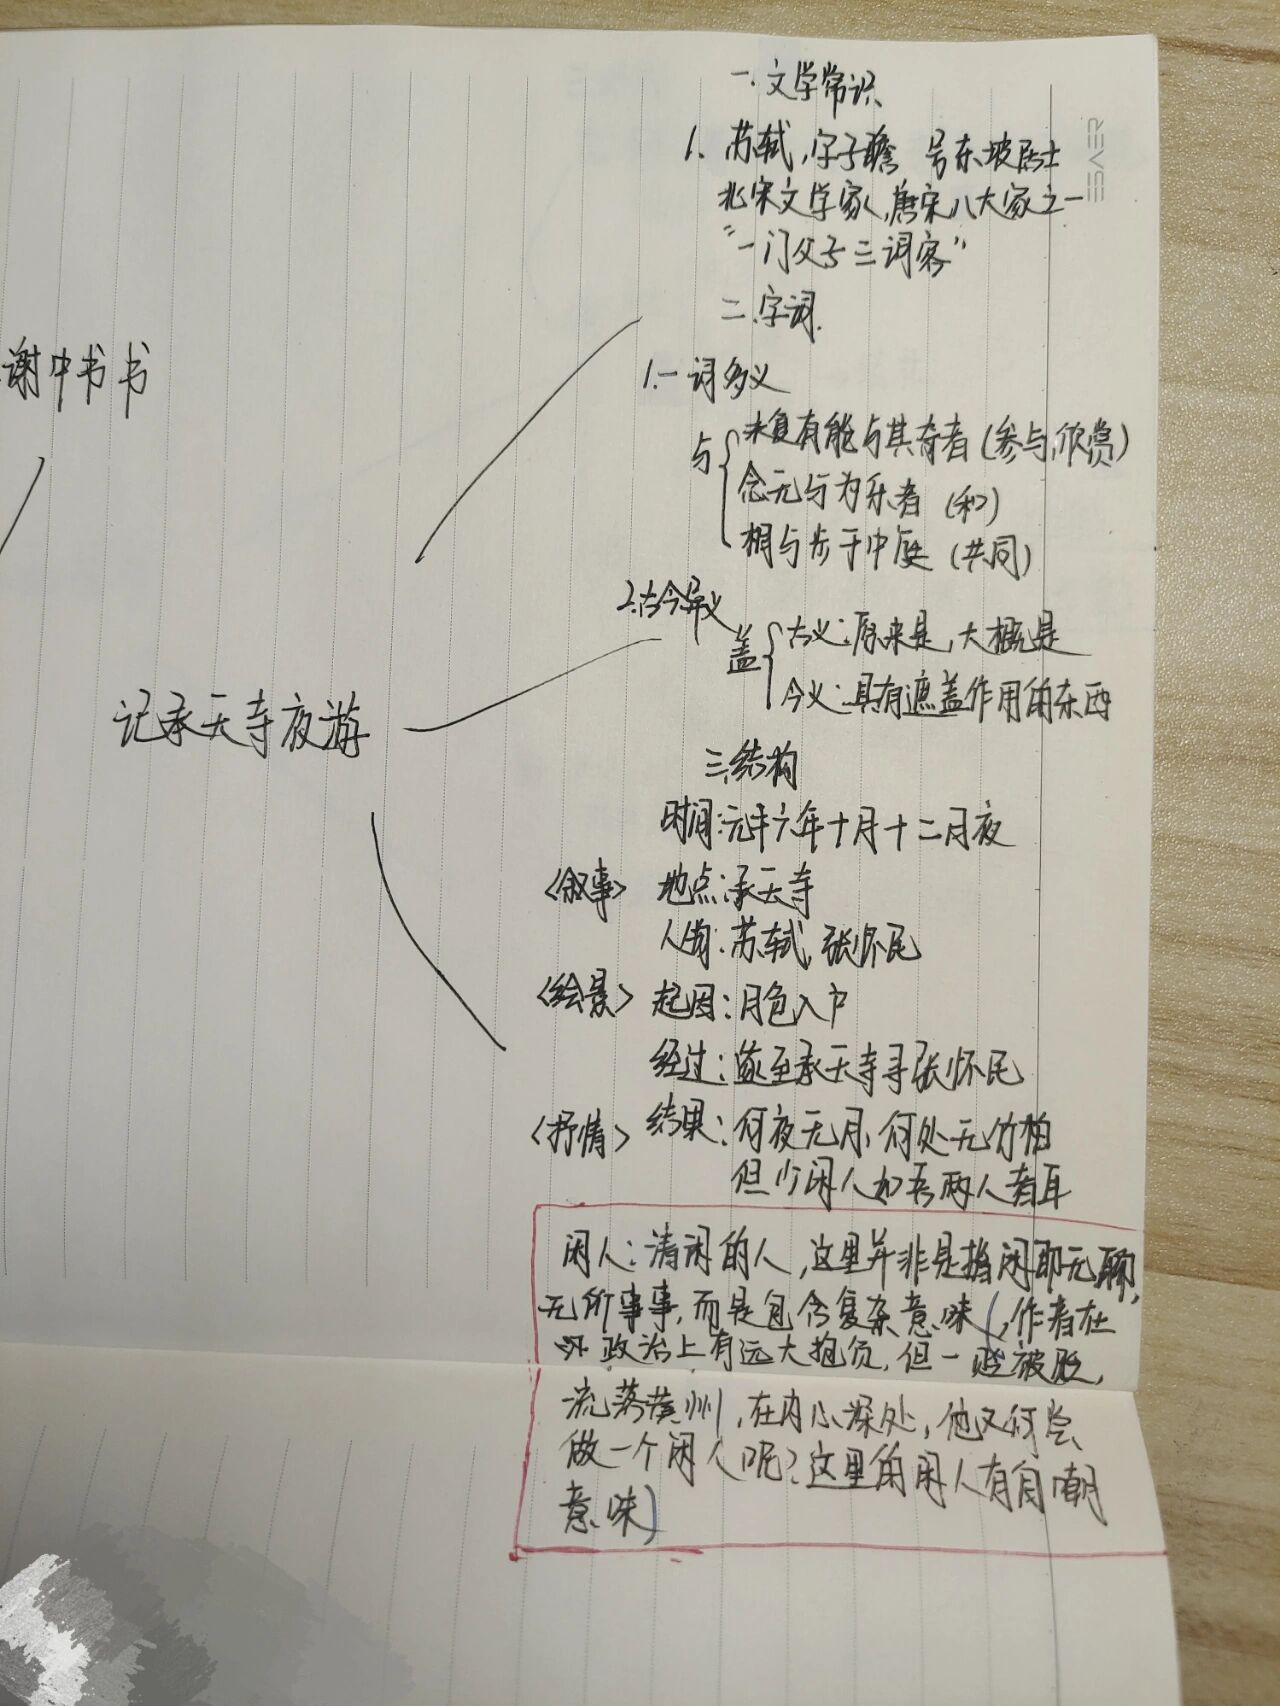 一.文学常识
1.苏轼,字子瞻 号东坡居士
北宋文学家,唐宋八大家之一
"一门父子三词客"
二.字词.
1.一词多义
与
未复有能与其奇者(参与,欣赏)
念无与为乐者(和)
相与步于中庭(共同)
2.古今异义
盖
古义:原来是,大概是
今义:具有遮盖作用的东西
三.结构
时间:元丰六年十月十二月夜
<叙事> 地点:承天寺
人物:苏轼,张怀民
<绘景> 起因:月色入户
经过:遂至承天寺寻张怀民
<抒情> 结果:何夜无月,何处无竹柏
但少闲人如吾两人者耳
闲人:清闲的人,这里并非是指闲那无聊,
无所事事,而是包含复杂意味(,作者在
政治上有远大抱负,但一贬被贬,
流落黄州,在内心深处,他又何尝
做一个闲人呢?这里的闲人有自嘲
意味)
谢中书书
记承天寺夜游
ESAER